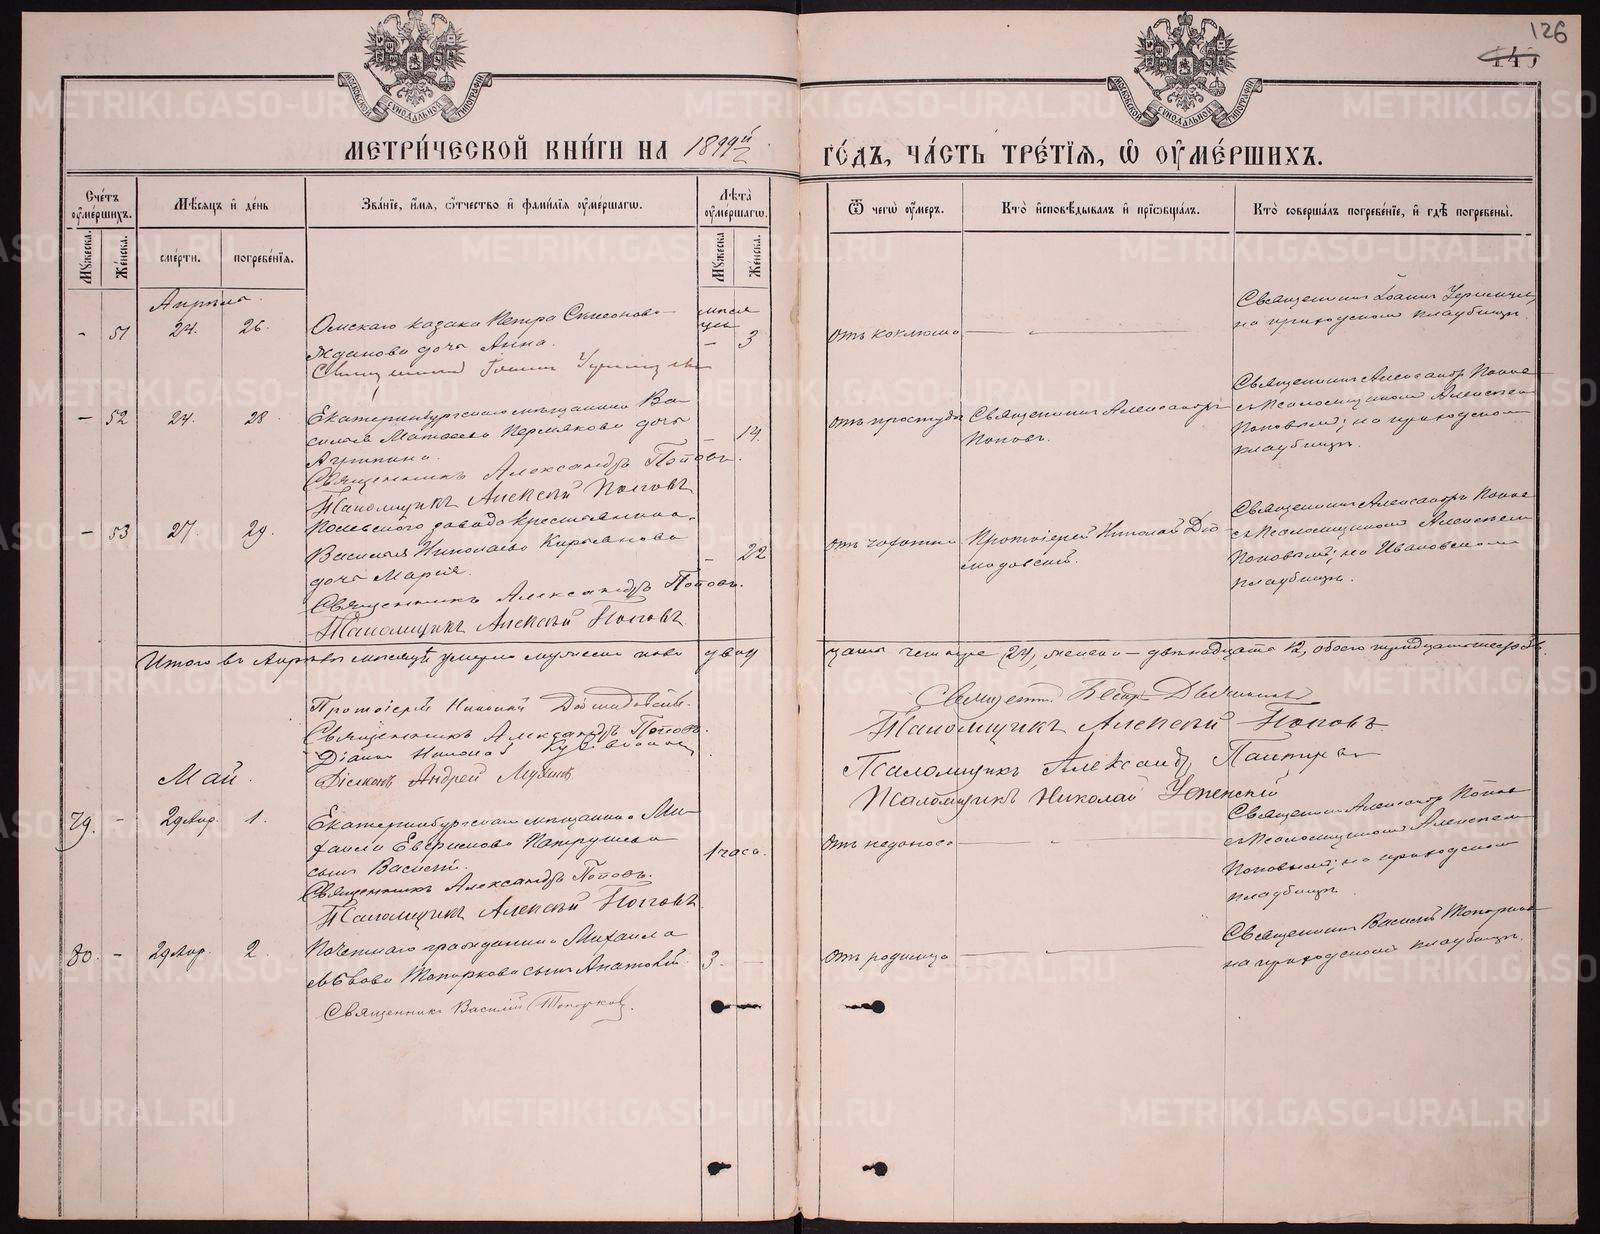 126
МЕТРИ́ЧЕСКОЙ КНИ́ГИ НА 1899й
ГО́ДЪ, ЧА́СТЬ ТРЕ́ТІЯ, Ѿ ОУМЕ́РШИХЪ.
Сче́тъ оуме́ршихъ.
Мѣ́сяцъ и де́нь
Зва́ніе, и́мя, о́тчество и фами́лія оуме́ршагѡ.
Лѣта̀ оуме́ршагѡ.
Ѿ чегѡ̀ оу́меръ.
Кто̀ исповѣ́дывалъ и прїѡбща́лъ.
Кто̀ соверша́лъ погребе́ніе, и гдѣ̀ погребены̀.
Мꙋ́жеска. Же́нска. сме́рти. погребе́нія. Мꙋ́жеска Же́нска.
Апрѣль.
- 51 24. 26.
Омскаго казака Петра Симеонова
Жданова дочь Анна.
Священникъ Іоаннъ
месяцы
- 3
отъ коклюша
Священникъ Іоаннъ
на приходскомъ кладбищѣ.
- 52 24. 28.
Екатеринбургскаго мѣщанина Ва-
силія Матвѣева Пермякова дочь
Агрипина.
Священникъ Александръ Поповъ.
Псаломщикъ Алексѣй Поповъ
- 14.
отъ простуды
Священникъ Александръ
Поповъ.
Священникъ Александръ Поповъ
съ Псаломщикомъ Алексѣемъ
Поповымъ; на приходскомъ
кладбищѣ.
- 53 27. 29.
Полевского завода крестьянина
Василія Николаева Кирьянова
дочь Марія.
Священникъ Александръ Поповъ.
Псаломщикъ Алексѣй Поповъ
- 22
отъ чахотки
Протоіерей Николай Діо-
мидовскій.
Священникъ Александръ Поповъ
съ Псаломщикомъ Алексѣемъ
Поповымъ; на Ивановскомъ
кладбищѣ.
Итого въ Апрѣлѣ мѣсяцѣ умерло мужеска пола двад
цать четыре 24, женска – двѣнадцать 12, обоего тридцать шесть 36.
Протоіерей Николай Діомидовскій.
Священникъ Александръ Поповъ.
Діаконъ Николай
Діаконъ Андрей
Псаломщикъ Алексѣй Поповъ
Псаломщикъ Александръ
Псаломщикъ Николай Успенскій
Май.
79. - 29 Апр. 1.
Екатеринбургскаго мѣщанина Ми-
хаила Патрушева
сынъ Василій.
Священникъ Александръ Поповъ.
Псаломщикъ Алексѣй Поповъ
1 часа.
отъ недоноса
Священникъ Александръ Поповъ
съ Псаломщикомъ Алексѣемъ
Поповымъ; на приходскомъ
кладбищѣ
80. - 29 Апр. 2.
Почетнаго гражданина Михаила
Львова Топоркова сынъ Анатолій.
Священникъ Василій Топорковъ.
3. -
отъ родимца
Священникъ Василій Топорковъ
на приходскомъ кладбищѣ.
METRIKI.GASO-URAL.RU